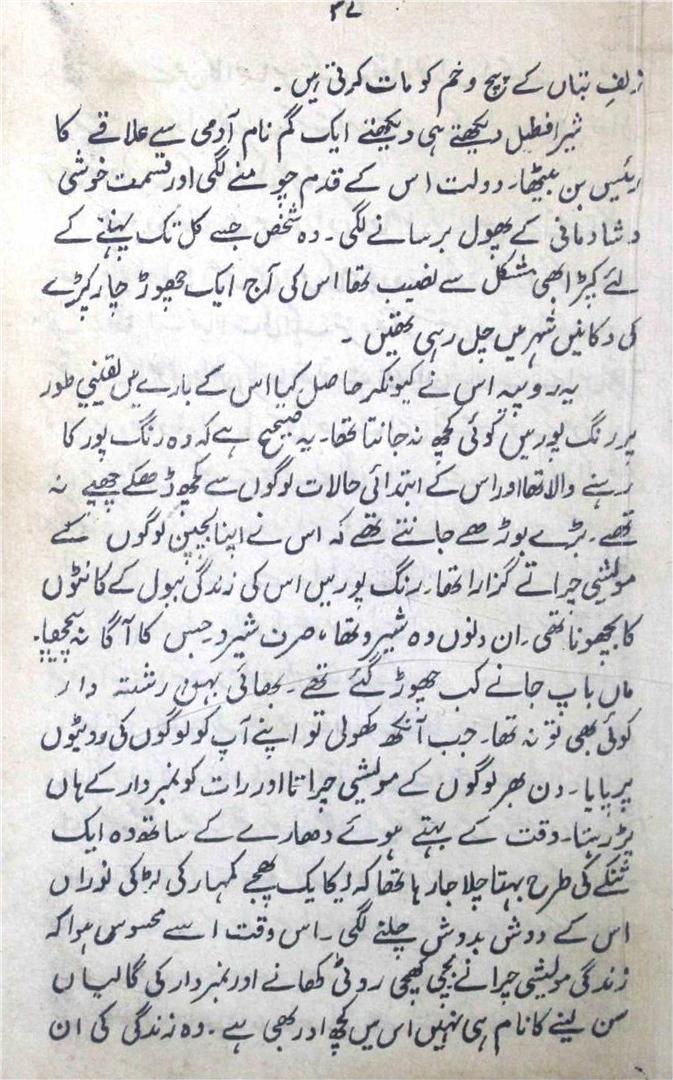 ۳۷
زلفِ بتاں کے پیچ و خم کو مات کرتی ہیں ۔
شیر افضل دیکھتے ہی دیکھتے ایک گم نام آدمی سے علاقے کا
رئیس بن بیٹھا۔ دولت اس کے قدم چومنے لگی اور قسمت خوشی
و شادمانی کے پھول برسانے لگی ۔ وہ شخص جسے کل تک پہننے کے
لئے کپڑا بھی مشکل سے نصیب تھا اس کی آج ایک چھوڑ چار کپڑے
کی دکانیں شہر میں چل رہی تھیں ۔
یہ روپیہ اس نے کیونکر حاصل کیا اس کے بارے میں یقینی طور
پر رنگ پور میں کوئی کچھ نہ جانتا تھا۔ یہ صحیح ہے کہ وہ رنگ پور کا
رہنے والا تھا اور اس کے ابتدائی حالات لوگوں سے کچھ ڈھکے چھپے نہ
تھے۔ بڑے بوڑھے جانتے تھے کہ اس نے اپنا بچپن لوگوں کے
مویشی چراتے گزارا تھا۔ رنگ پور میں اس کی زندگی ببول کے کانٹوں
کا بچھونا تھی۔ ان دنوں وہ شیرو تھا، صرف شیرو جس کا آگا نہ پیچھا۔
ماں باپ جانے کب چھوڑ گئے تھے ۔ بھائی بہن رشتہ دار
کوئی بھی تو نہ تھا۔ جب آنکھ کھولی تو اپنے آپ کو لوگوں کی روٹیوں
پر پایا۔ دن بھر لوگوں کے مویشی چراتا اور رات کو نمبردار کے ہاں
پڑ رہتا۔ وقت کے بہتے ہوئے دھارے کے ساتھ وہ ایک
تنکے کی طرح بہتا چلا جا رہا تھا کہ ایکا یک پھجے کمہار کی لڑکی نوراں
اس کے دوش بدوش چلنے لگی ۔ اس وقت اسے محسوس ہوا کہ
زندگی مویشی چرانے بچی کھچی روٹی کھانے اور نمبردار کی گالیاں
سن لینے کا نام ہی نہیں اس میں کچھ اور بھی ہے ۔ وہ زندگی کی ان